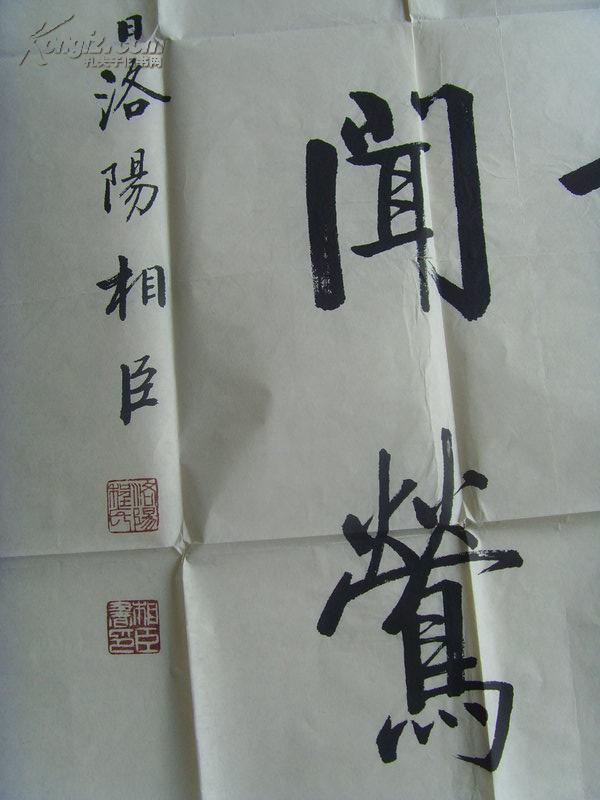 聞鶯
洛陽相臣
洛陽程氏
相臣書印
Kongfz.com
孔夫子旧书网